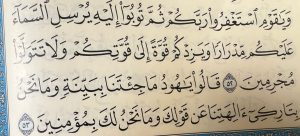 وَيَٰقَوْمِ ٱسْتَغْفِرُوا۟ رَبَّكُمْ ثُمَّ تُوبُوٓا۟ إِلَيْهِ يُرْسِلِ ٱلسَّمَآءَ
عَلَيْكُم مِّدْرَارًا وَيَزِدْكُمْ قُوَّةً إِلَىٰ قُوَّتِكُمْ وَلَا تَتَوَلَّوْا۟
مُجْرِمِينَ ٥٢ قَالُوا۟ يَٰهُودُ مَا جِئْتَنَا بِبَيِّنَةٍ وَمَا نَحْنُ
بِتَارِكِىٓ ءَالِهَتِنَا عَن قَوْلِكَ وَمَا نَحْنُ لَكَ بِمُؤْمِنِينَ ٥٣